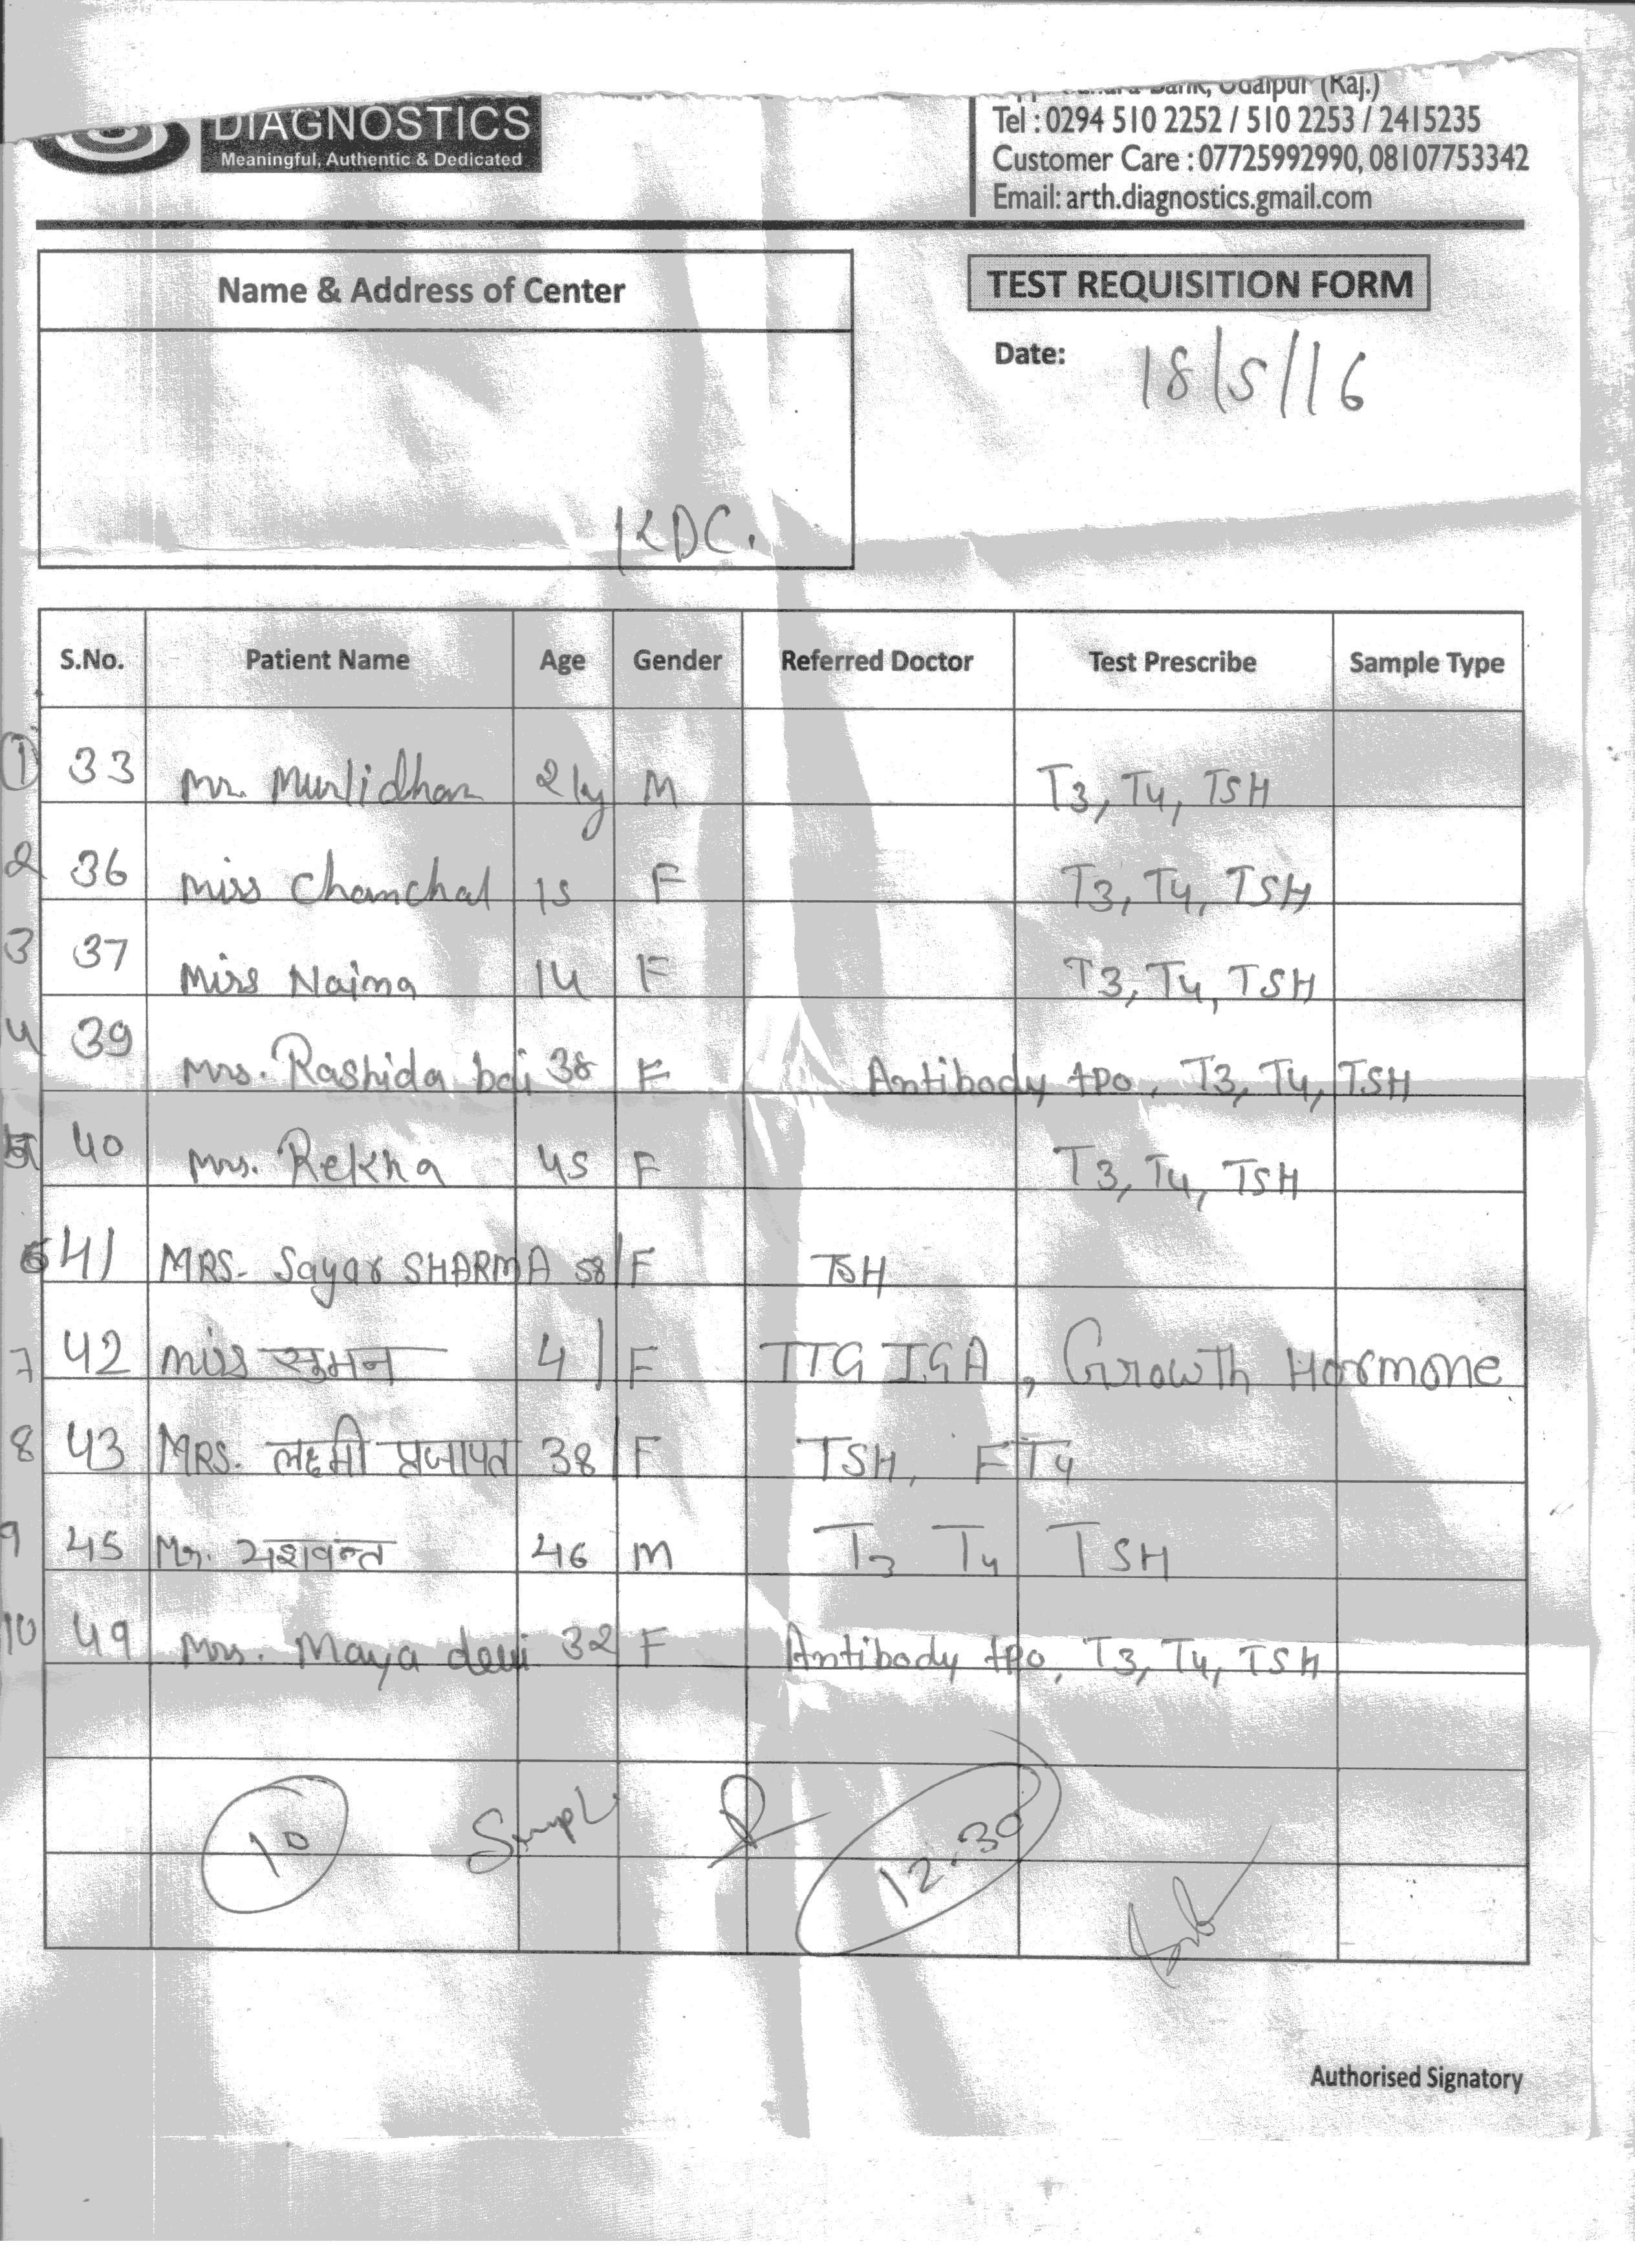 DIAGNOSTICS
Meaningful, Authentic & Dedicated
Bank, Udaipur (Raj.)
Tel : 0294 510 2252 / 510 2253 / 2415235
Customer Care : 07725992990, 08107753342
Email: arth.diagnostics.gmail.com
Name & Address of Center
TEST REQUISITION FORM
Date: 18/5/16
KDC.
S.No. Patient Name Age Gender Referred Doctor Test Prescribe Sample Type
1 33 Mr. Murlidhar 21y M T3, T4, TSH
2 36 Miss Chanchal 15 F T3, T4, TSH
3 37 Miss Najma 14 F T3, T4, TSH
4 39 Mrs. Rashida bai 38 F Antibody tpo, T3, T4, TSH
5 40 Mrs. Rekha 45 F T3, T4, TSH
6 41 MRS. Sayar SHARMA 58/F TSH
7 42 miss सुमन 4/F TTG IGA, Growth Hormone
8 43 MRS. लक्ष्मी प्रजापत 38/F TSH, FT4
9 45 Mr. यशवन्त 46 M T3 T4 TSH
10 49 Mrs. Maya devi 32 F Antibody tpo, T3, T4, TSH
10 Sample 12.30
Authorised Signatory